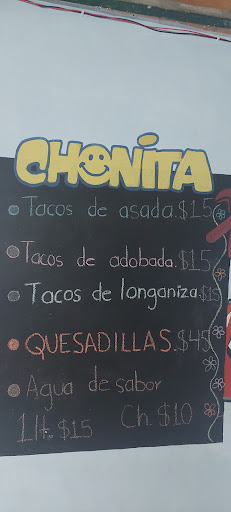 CHONITA
Tacos de asada.$15
Tacos de adobada.$15
Tacos de longaniza.$15
QUESADILLAS.$45
Agua de sabor
1lt.$15 Ch.$10